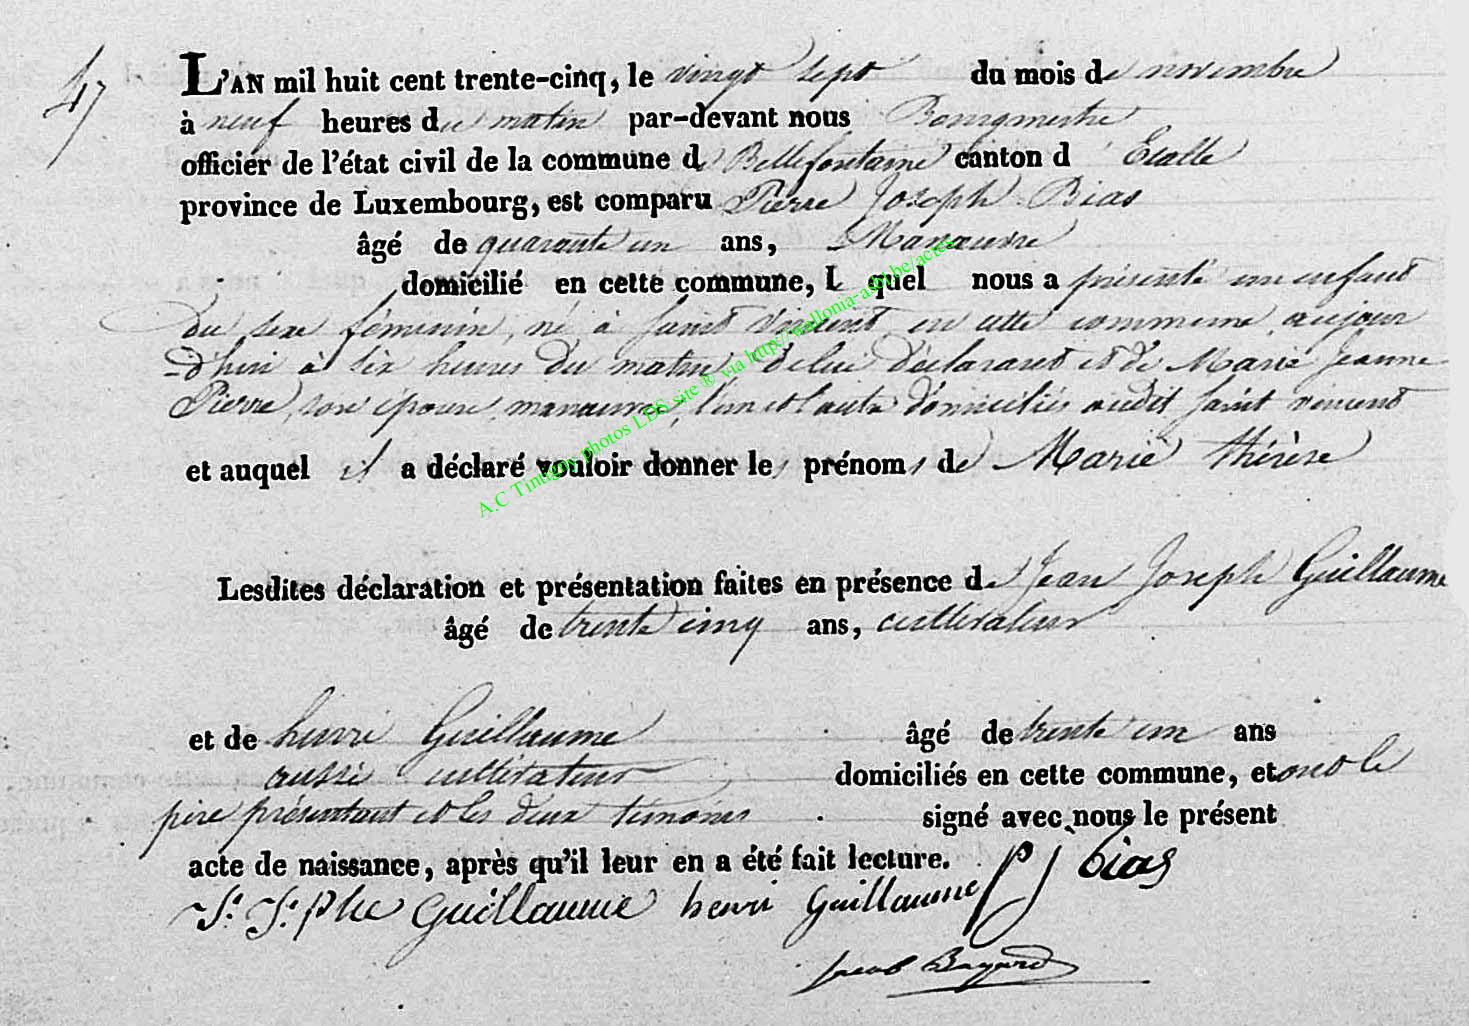 47
L'AN mil huit cent trente-cinq, le vingt sept du mois de novembre
à neuf heures du matin par-devant nous Bourgmestre
officier de l'état civil de la commune de Bellefontaine canton d'Etalle
province de Luxembourg, est comparu Pierre Joseph Bias
âgé de quarante un ans, Manœuvre
domicilié en cette commune, L quel nous a présenté un enfant
du sexe féminin, né à saint vincent en cette commune aujour
d'hui à six heures du matin de lui déclarant et de Marie Jeanne
Pierre, son épouse, manœuvre, l'un et l'autre domiciliés audit saint vincent
et auquel il a déclaré vouloir donner les prénoms de Marie thérèse
Lesdites déclaration et présentation faites en présence de Jean Joseph Guillaume
âgé de trente cinq ans, cultivateur
et de henri Guillaume âgé de trente un ans
aussi cultivateur domiciliés en cette commune, et ont le
père présentant et les deux témoins signé avec nous le présent
acte de naissance, après qu'il leur en a été fait lecture. p j bias
Guillaume henri Guillaume
Jacob Bayard
A.C Tintigny photos LDS site ® via http://wallonia-asbl.be/actes